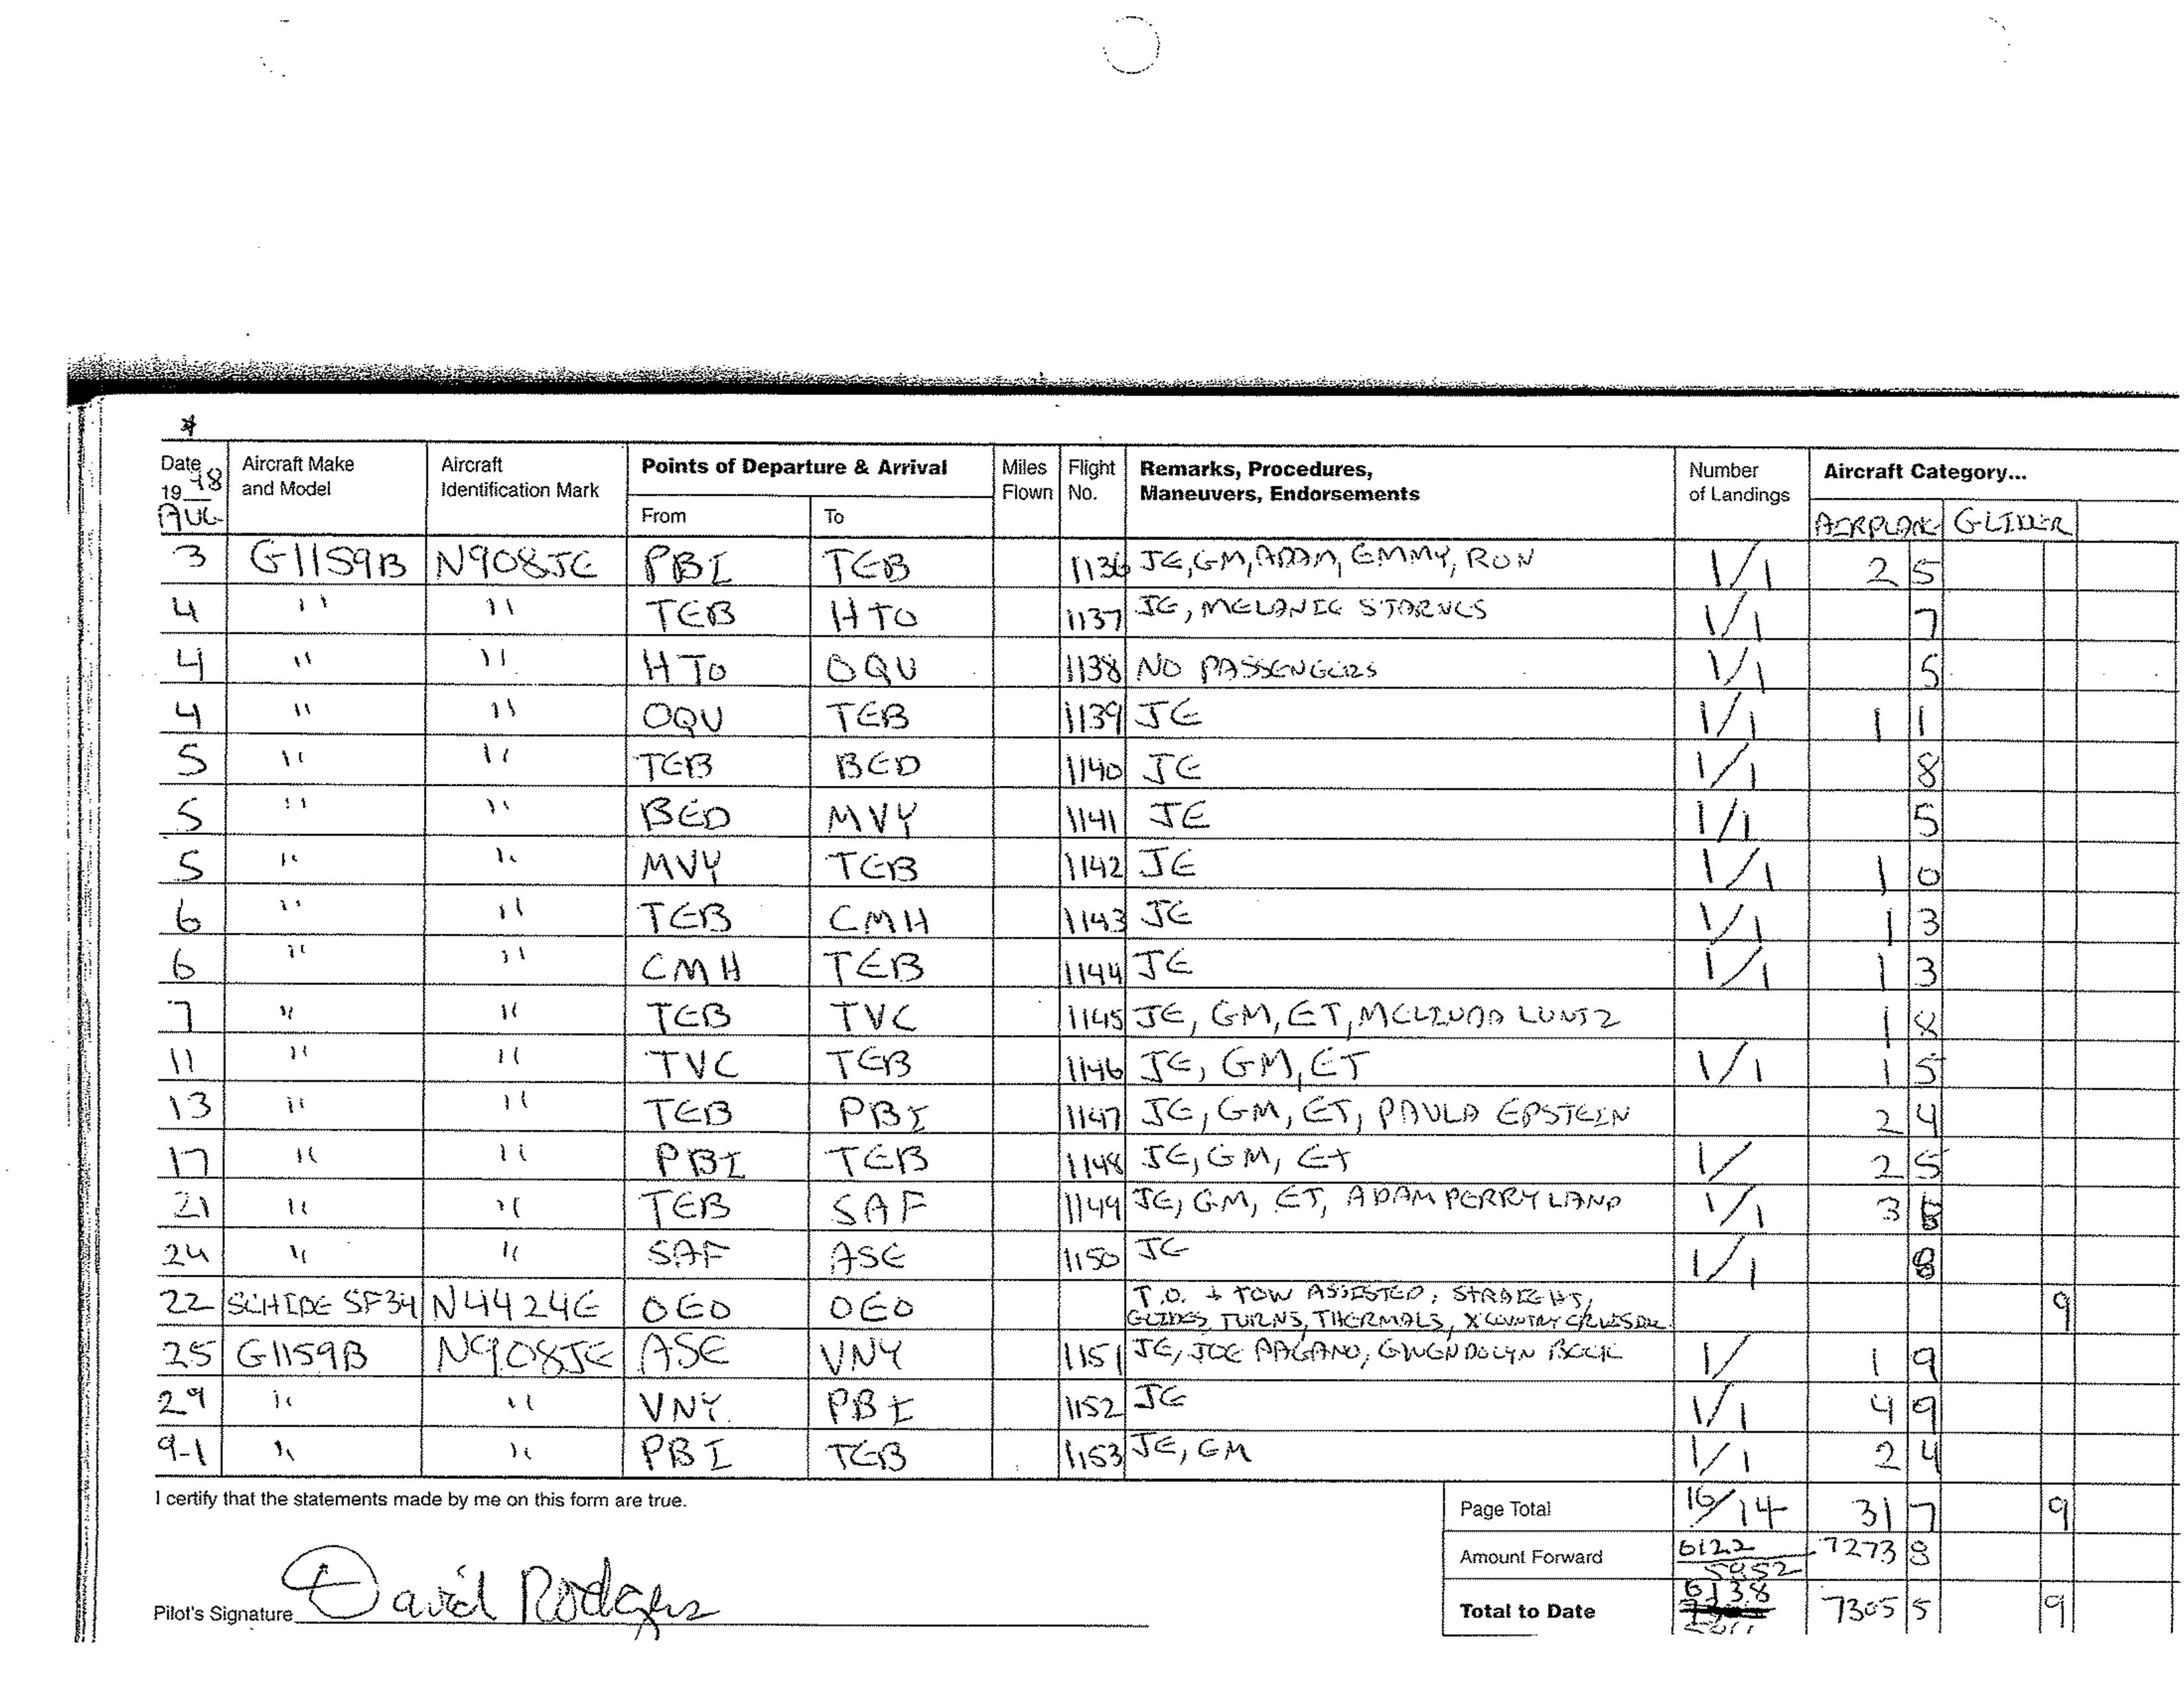 *
Date Aircraft Make Aircraft Points of Departure & Arrival Miles Flight Remarks, Procedures, Number Aircraft Category...
19 98 and Model Identification Mark Flown No. Maneuvers, Endorsements of Landings
AUG From To AIRPLANE GLIDER
3 G1159B N908JE PBI TEB 1136 JE, GM, ADAM, EMMY, RON 1/1 2 5
4 " " TEB HTO 1137 JE, MELANIE STARNES 1/1 7
4 " " HTO OQU 1138 NO PASSENGERS 1/1 5
4 " " OQU TEB 1139 JE 1/1 1 1
5 " " TEB BED 1140 JE 1/1 8
5 " " BED MVY 1141 JE 1/1 5
5 " " MVY TEB 1142 JE 1/1 1 0
6 " " TEB CMH 1143 JE 1/1 1 3
6 " " CMH TEB 1144 JE 1/1 1 3
7 " " TEB TVC 1145 JE, GM, ET, MELINDA LUNTZ 1 8
11 " " TVC TEB 1146 JE, GM, ET 1/1 1 5
13 " " TEB PBI 1147 JE, GM, ET, PAULA EPSTEIN 2 4
17 " " PBI TEB 1148 JE, GM, ET 1/ 2 5
21 " " TEB SAF 1149 JE, GM, ET, ADAM PERRY LAND 1/1 3
24 " " SAF ASE 1150 JE 1/1 8
22 SCHIBE SF34 N4424E OEO OEO T.O. + TOW ASSISTED; STRAIGHT, 9
GLIDES, TURNS, THERMALS, X'COUNTRY
25 G1159B N908JE ASE VNY 1151 JE, JOE PAGANO, GWENDOLYN BECK 1/ 1 9
29 " " VNY PBI 1152 JE 1/1 4 9
9-1 " " PBI TEB 1153 JE, GM 1/1 2 4
I certify that the statements made by me on this form are true.
Page Total 16/14 31 7 9
Amount Forward 6122 5952 7273 8
Total to Date 6138 7305 5 9
Pilot's Signature David Rodgers